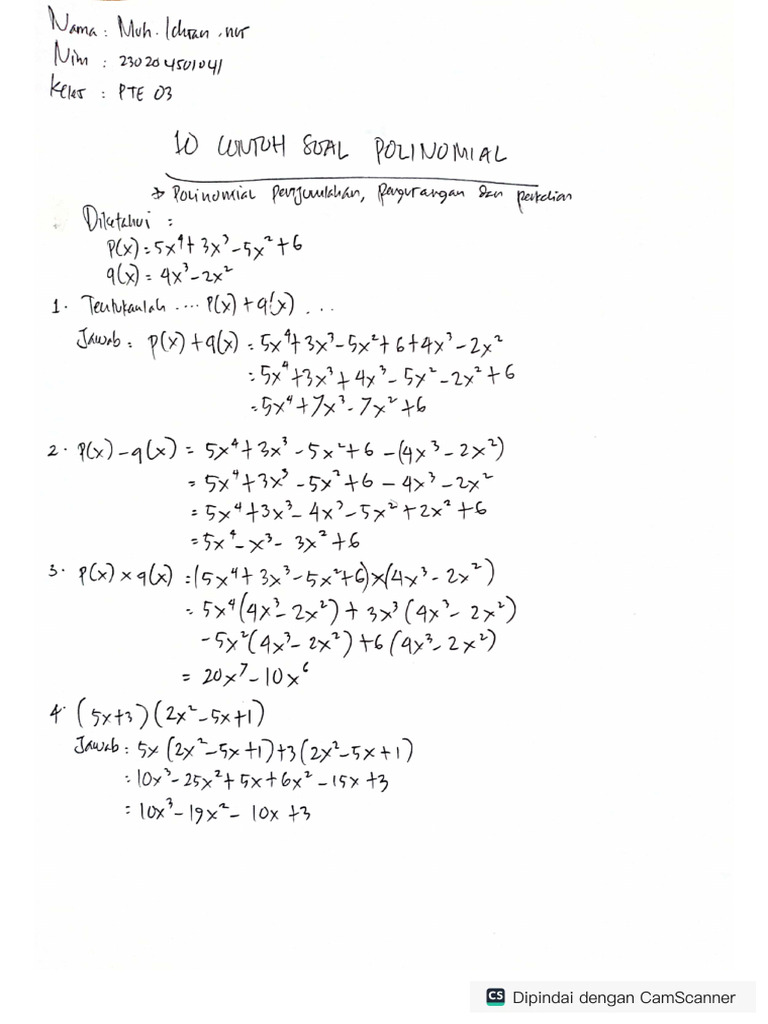 Nama : Muh. Ichwan .nur
Nim : 230204501041
Kelas : PTE 03
10 CONTOH SOAL POLINOMIAL
→ Polinomial Penjumlahan, Pengurangan dan perkalian
Diketahui :
P(x) = 5x⁴ + 3x³ - 5x² + 6
q(x) = 4x³ - 2x²
1. Tentukanlah .... P(x) + q(x) ...
Jawab : p(x) + q(x) = 5x⁴ + 3x³ - 5x² + 6 + 4x³ - 2x²
= 5x⁴ + 3x³ + 4x³ - 5x² - 2x² + 6
= 5x⁴ + 7x³ - 7x² + 6
2. P(x) - q(x) = 5x⁴ + 3x³ - 5x² + 6 - (4x³ - 2x²)
= 5x⁴ + 3x³ - 5x² + 6 - 4x³ - 2x²
= 5x⁴ + 3x³ - 4x³ - 5x² + 2x² + 6
= 5x⁴ - x³ - 3x² + 6
3. P(x) × q(x) = (5x⁴ + 3x³ - 5x² + 6) × (4x³ - 2x²)
= 5x⁴ (4x³ - 2x²) + 3x³ (4x³ - 2x²)
- 5x² (4x³ - 2x²) + 6 (4x³ - 2x²)
= 20x⁷ - 10x⁶
4. (5x+3) (2x² - 5x + 1)
Jawab : 5x (2x² - 5x + 1) + 3 (2x² - 5x + 1)
= 10x³ - 25x² + 5x + 6x² - 15x + 3
= 10x³ - 19x² - 10x + 3
CS Dipindai dengan CamScanner